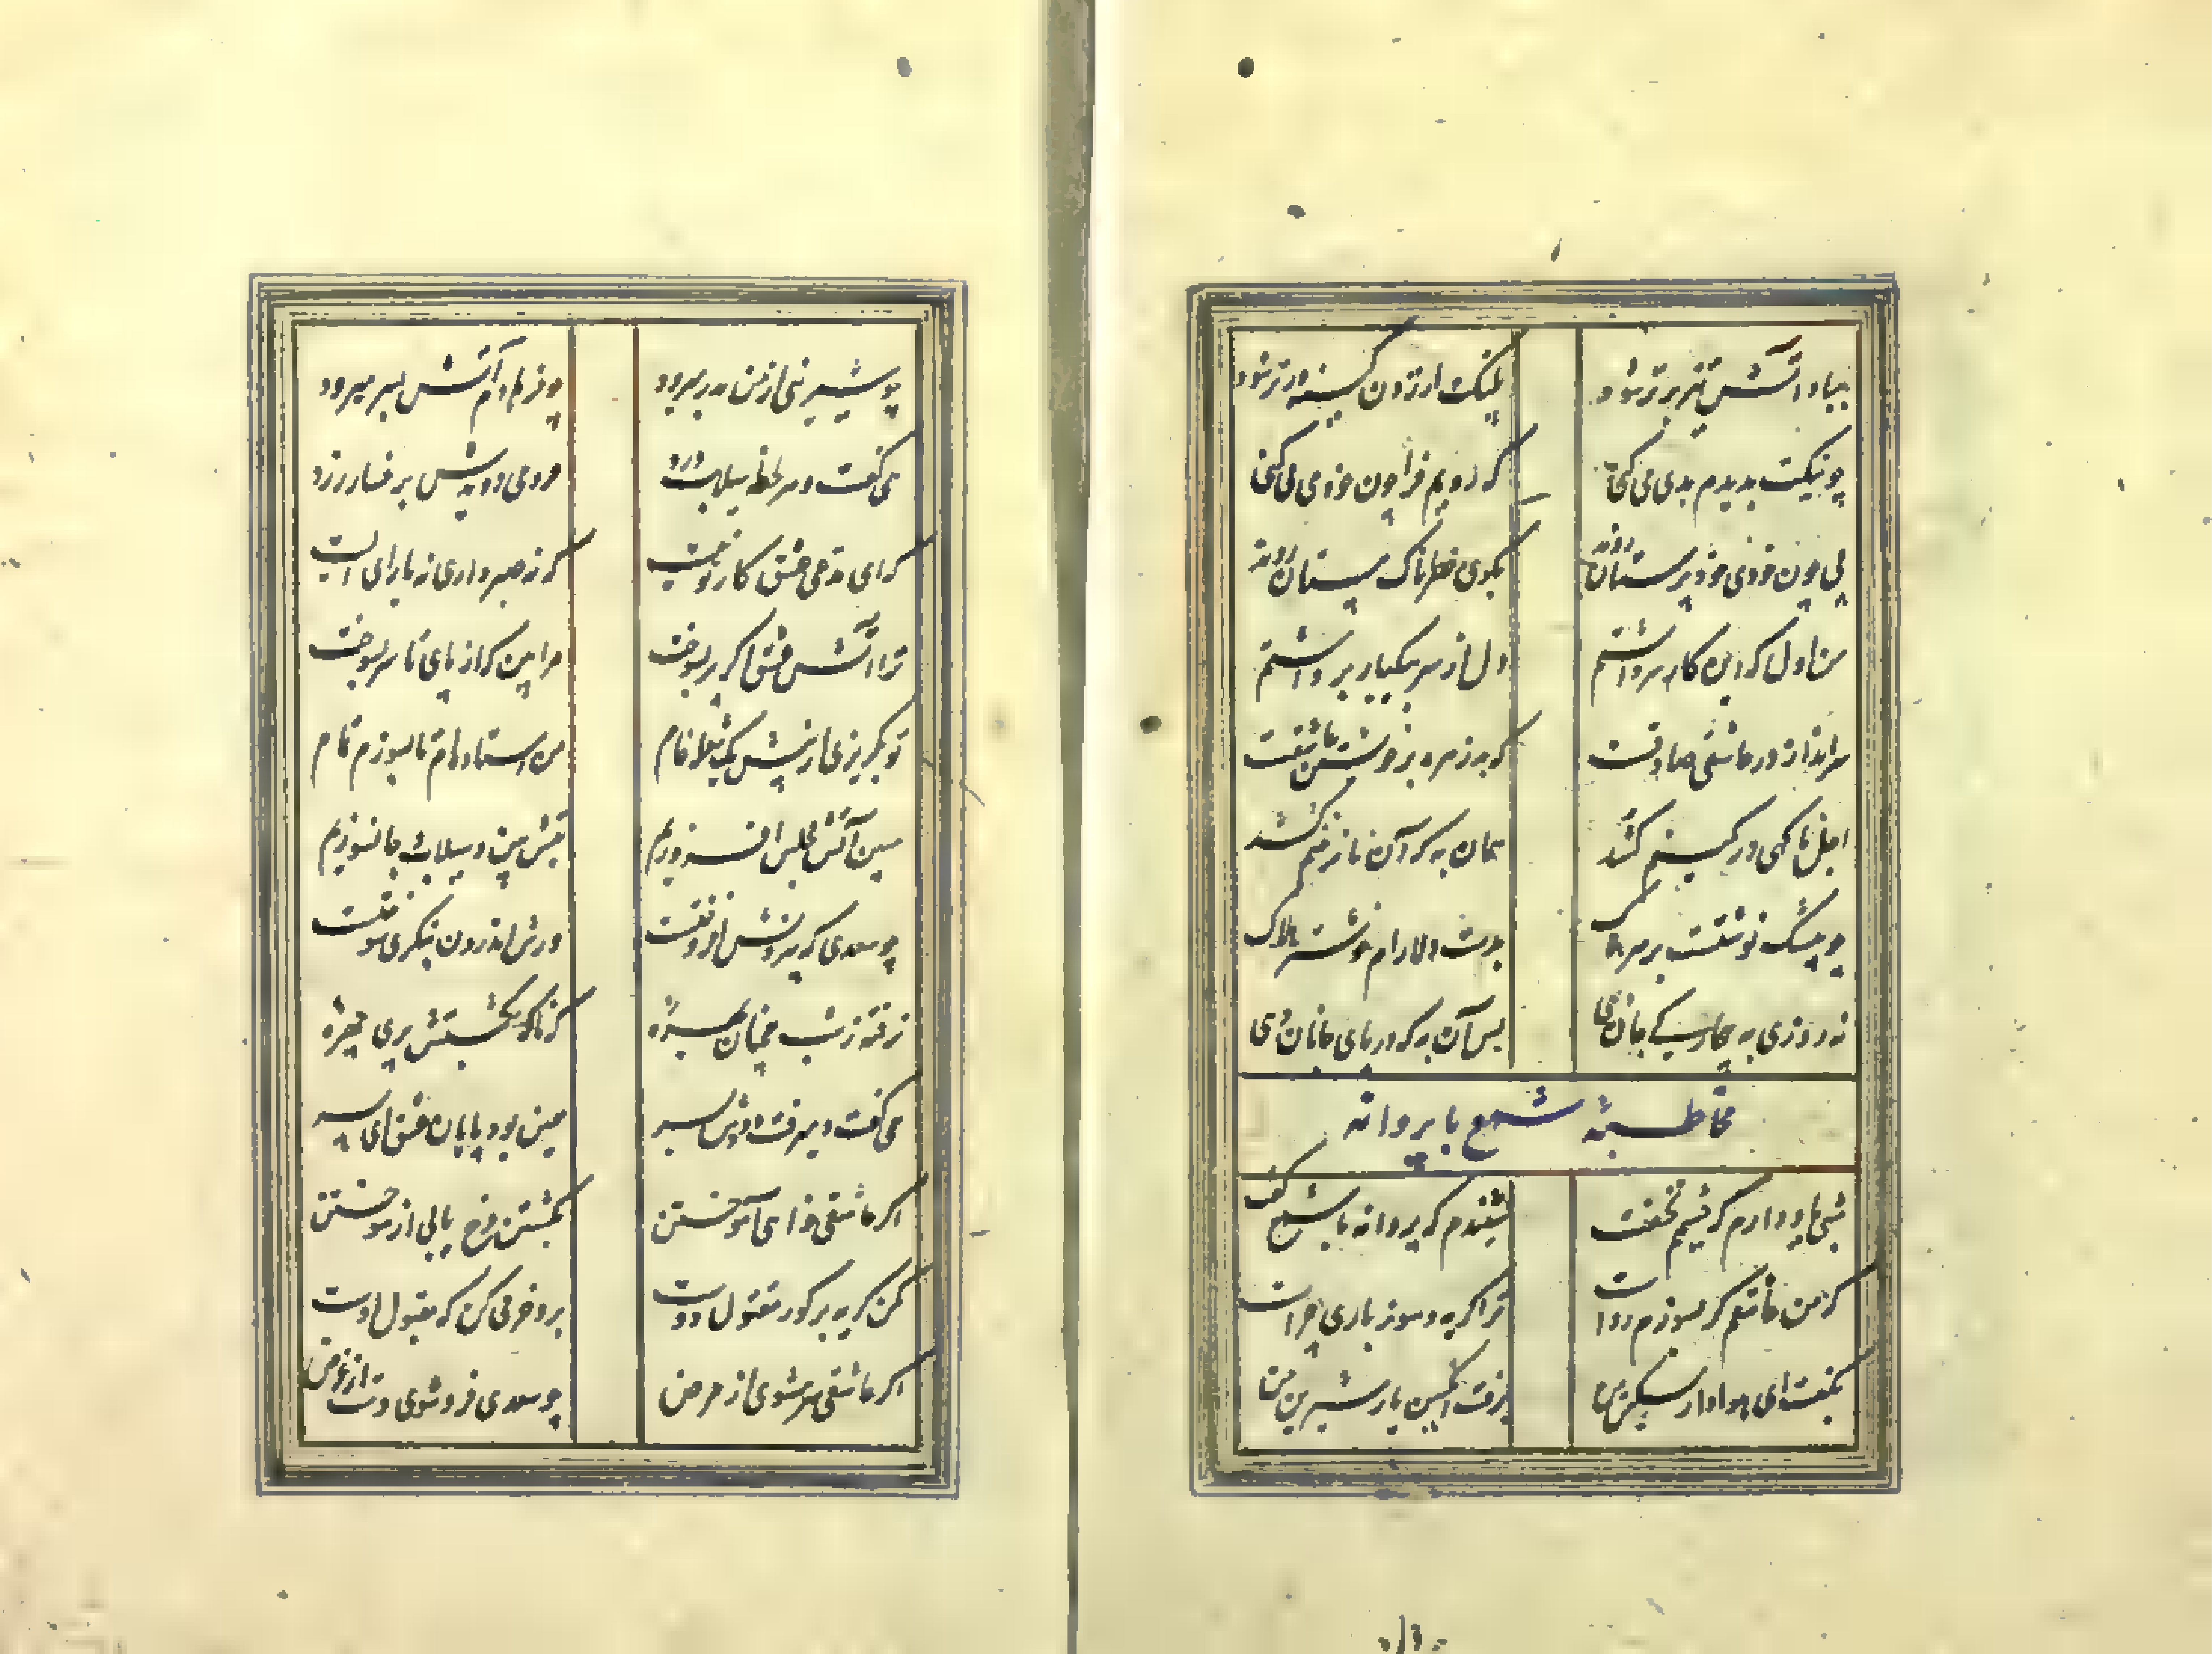 بباد آتش تیز برتر شود پلنگ از زدن کینه ورتر شود
چو نیکت بدیدم بدی می کنی که رویم فرا چون خودی می کنی
پی چون خودی خودپرستان روند بکوی خطرناک مستان روند
من اول که این کار سر داشتم دل از سر بیکبار برداشتم
سرانداز در عاشقی صادقست که بدزهره بر خویشتن عاشقست
اجل ناکهی در کمینم کشد همان به که آن نازنینم کشد
چو بیشک نوشتست بر سر هلاک بدست دلارام خوشتر هلاک
نه روزی به بیچارکی جان دهی پس آن به که در پای جانان دهی
مخاطبه شمع با پروانه
شبی یاد دارم که چشمم نخفت شنیدم که پروانه با شمع گفت
که من عاشقم کر بسوزم رواست ترا کریه و سوز باری چراست
بکفت ای هوادار مسکین من برفت انکبین یار شیرین من
چو شیرینی از من بدر میرود چو فرهادم آتش بسر میرود
می کفت و هر لحظه سیلاب درد فرو می دویدش بر رخسار زرد
که ای مدعی عشق کار تو نیست که نه صبر داری نه یارای ایست
ترا آتش عشق اکر پر بسوخت مرا بین که از پای تا سر بسوخت
تو بکریزی از پیش یک شعله خام من استاده ام تا بسوزم تمام
مبین آتش مجلس افروزیم تپش بین و سیلاب جانسوزیم
چو سعدی که بیرونش افروختست ورش اندرون بنکری سوختست
نرفته ز شب همچنان بهره که ناکه بکشتش پری چهره
می کفت و میرفت دودش بسر همین بود پایان عشق ای پسر
اکر عاشقی خواهی آموختن بکشتن فرج یابی از سوختن
مکن کریه بر کور مقتول دوست برو خرمی کن که مقبول اوست
اکر عاشقی سر مشوی از مرض چو سعدی فرو شوی دست از غرض